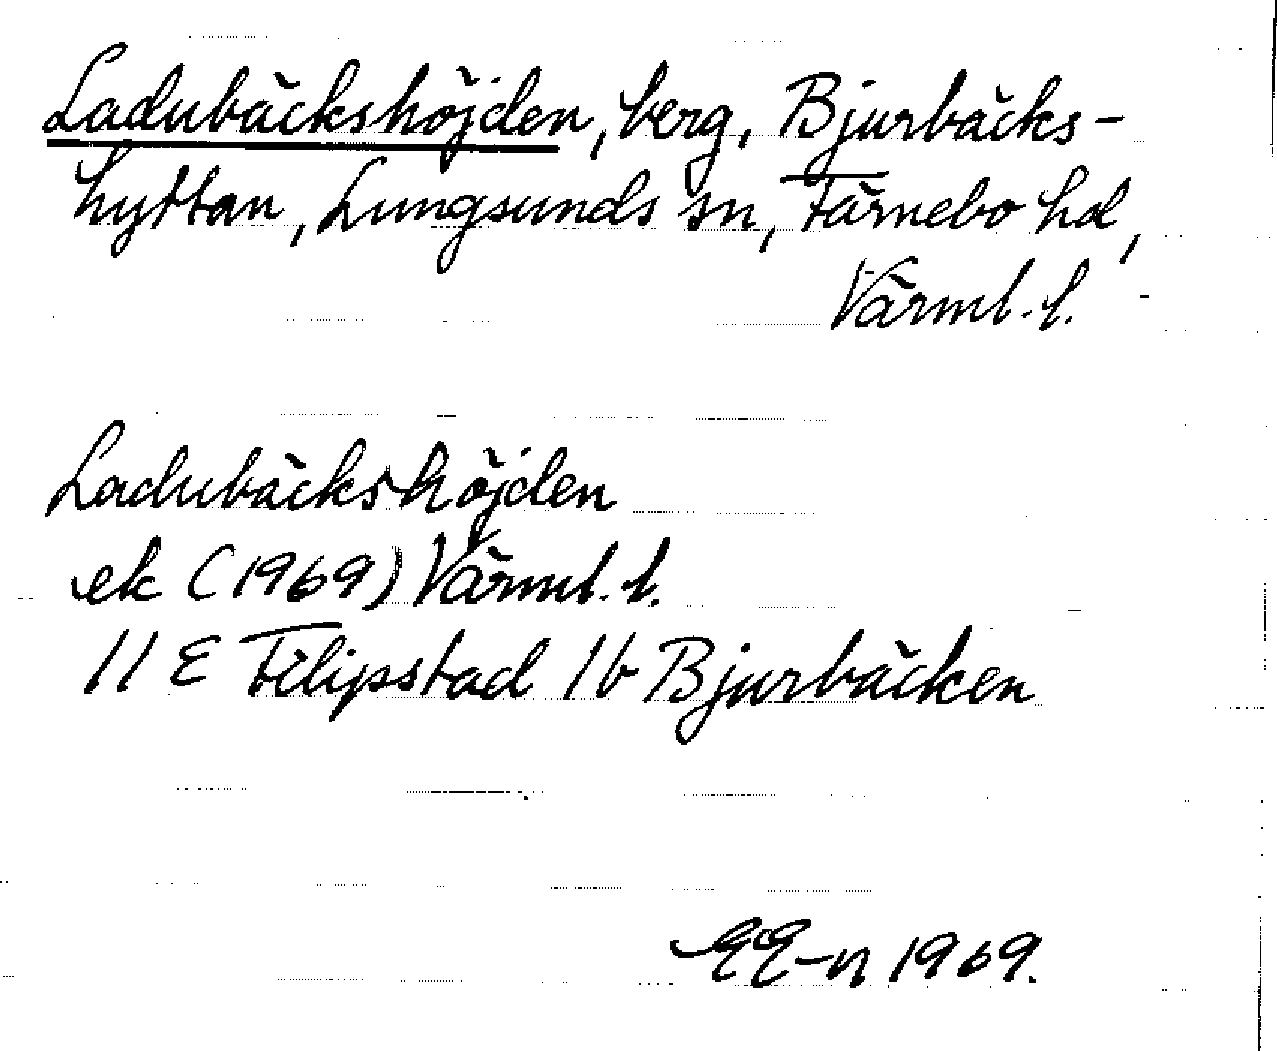 Ladubäckshöjden, berg, Bjurbäcks-
hyttan, Lungsunds sn, Färnebo hd,
Värml. l.
Ladubäckshöjden
ek (1969) Värml. l.
11 E Filipstad 1b Bjurbäcken
EE-n 1969.